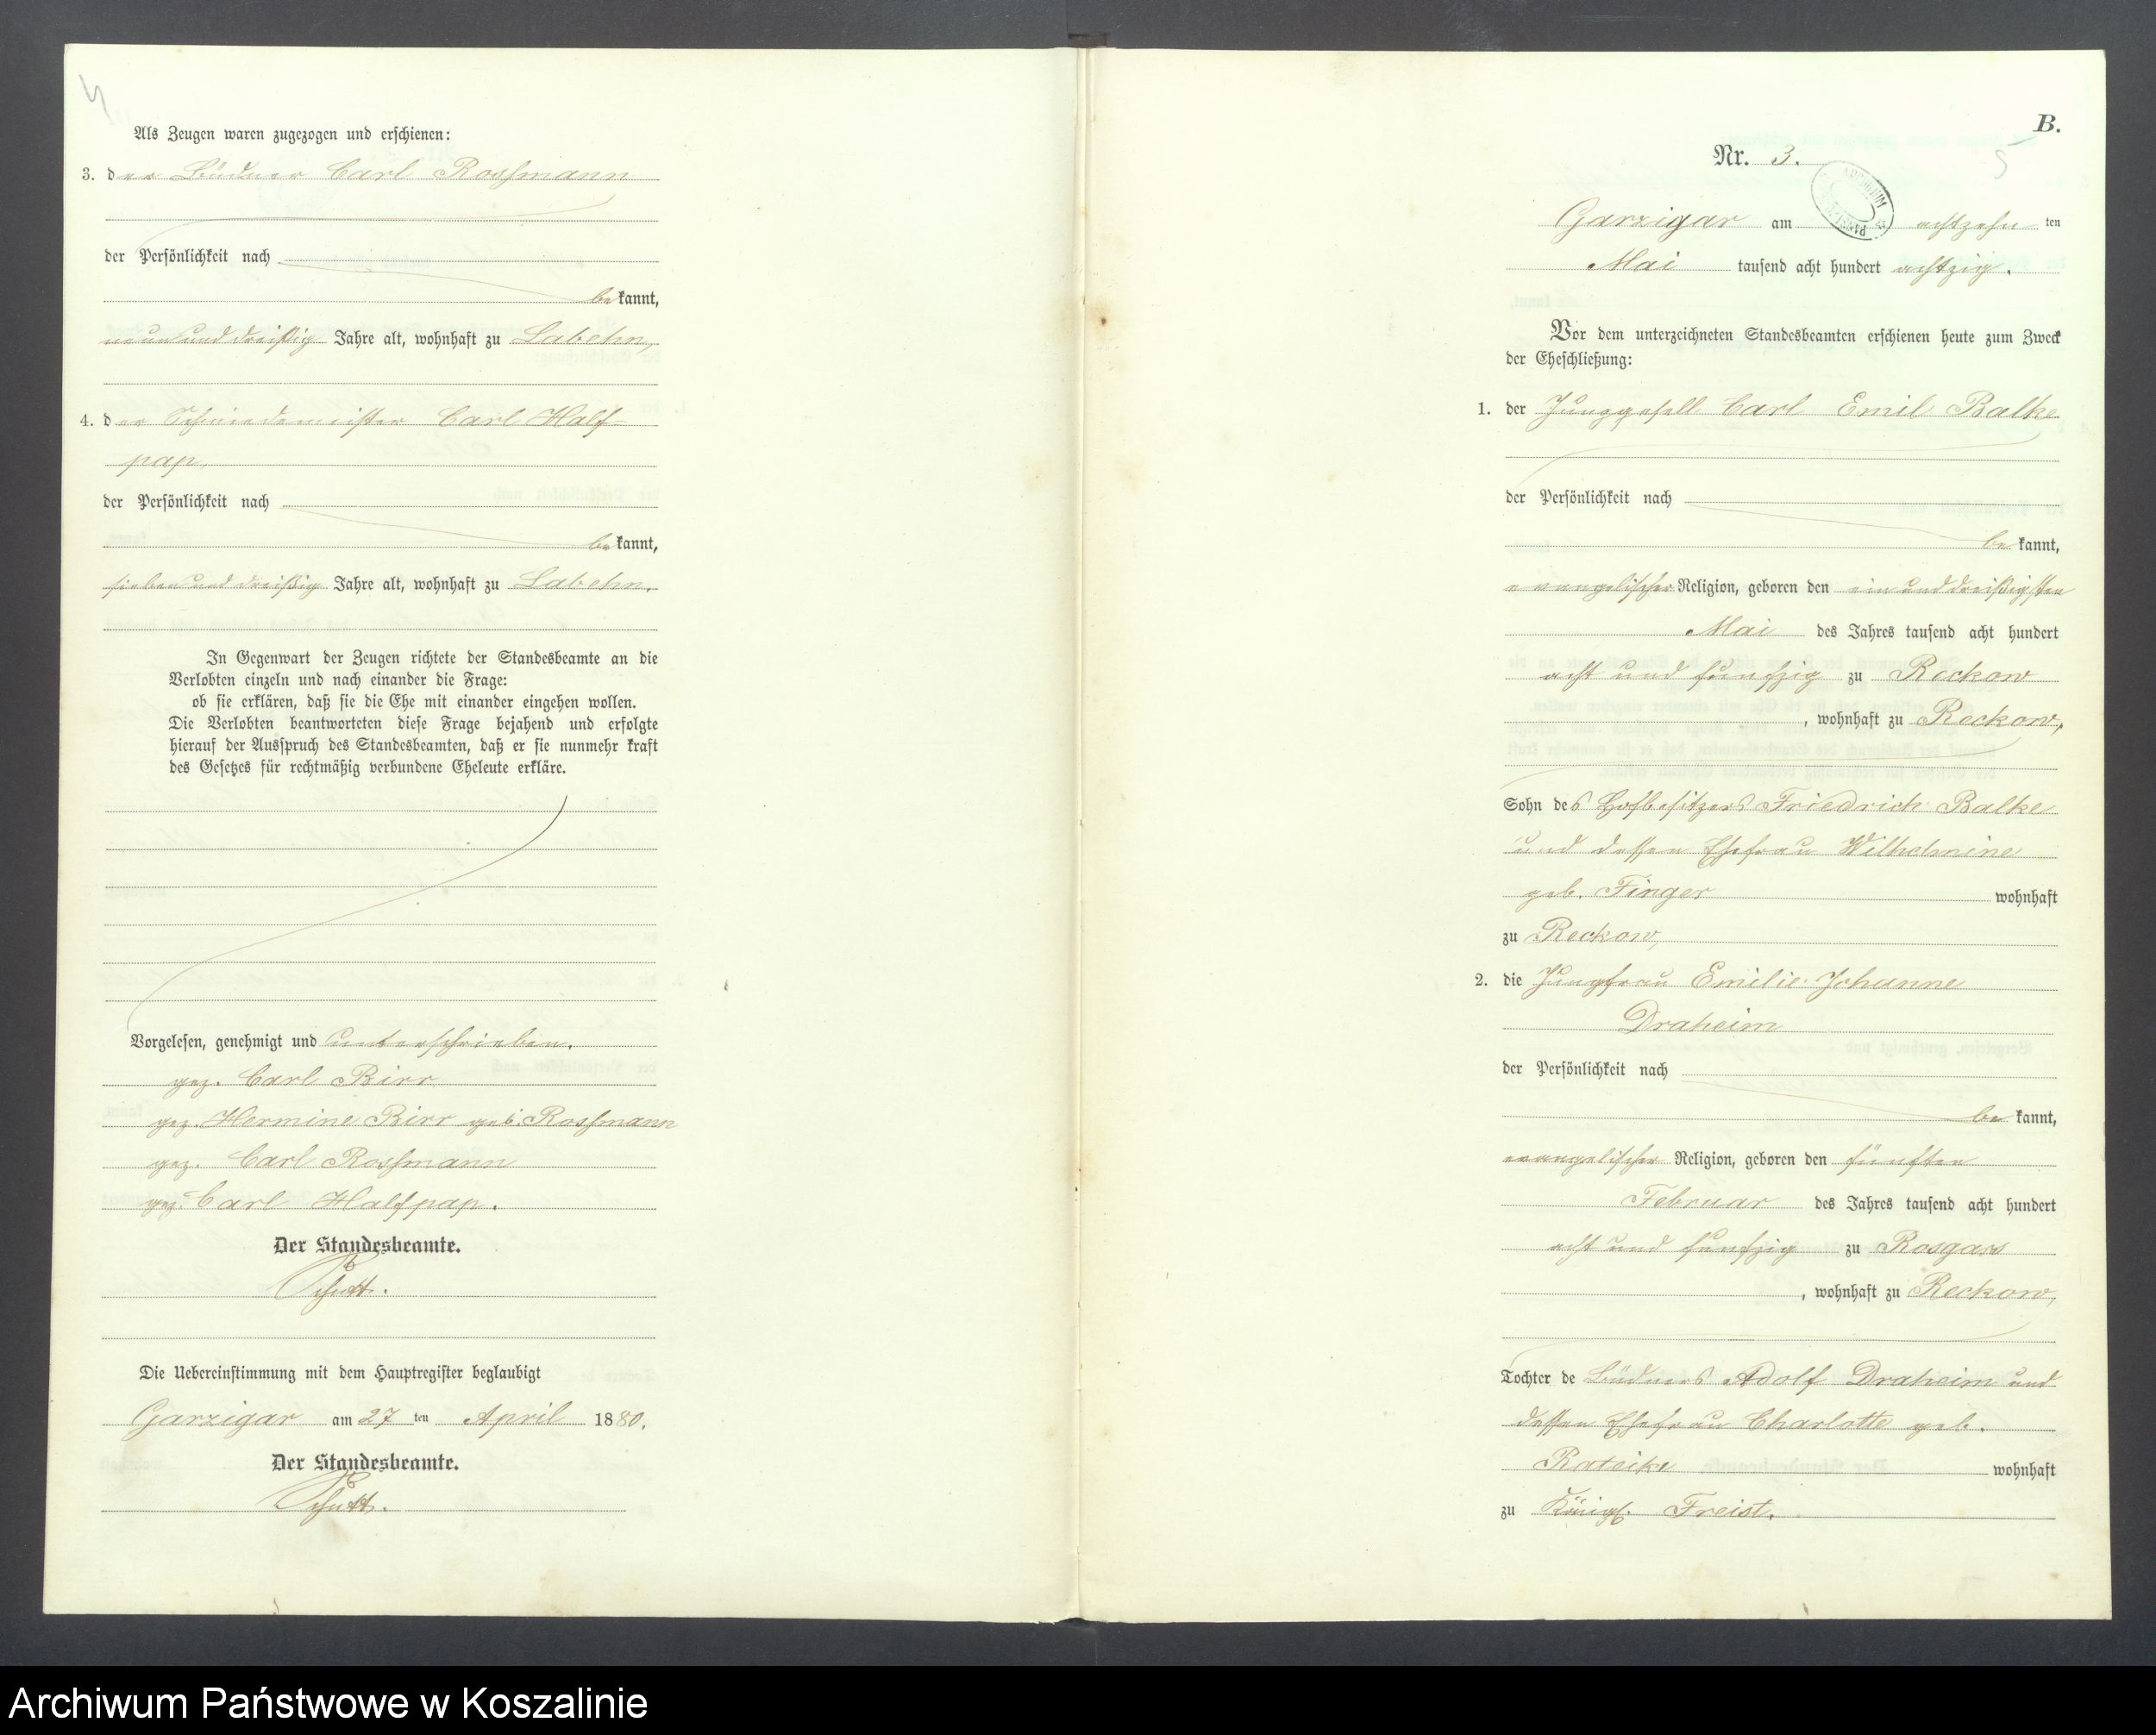 4
Als Zeugen waren zugezogen und erschienen:
3. der Büdner Carl Rossmann
der Persönlichkeit nach
bekannt,
neun und dreißig Jahre alt, wohnhaft zu Labehn,
4. der Schmiedemeister Carl Half-
pap,
der Persönlichkeit nach
bekannt,
sieben und dreißig Jahre alt, wohnhaft zu Labehn.
In Gegenwart der Zeugen richtete der Standesbeamte an die
Verlobten einzeln und nach einander die Frage:
ob sie erklären, daß sie die Ehe mit einander eingehen wollen.
Die Verlobten beantworteten diese Frage bejahend und erfolgte
hierauf der Ausspruch des Standesbeamten, daß er sie nunmehr kraft
des Gesetzes für rechtmäßig verbundene Eheleute erkläre.
Vorgelesen, genehmigt und unterschrieben.
gez. Carl Birr
gez. Hermine Birr geb. Rossmann
gez. Carl Rossmann
gez. Carl Halfpap.
Der Standesbeamte.
Schütt.
Die Uebereinstimmung mit dem Hauptregister beglaubigt
Garzigar am 27 ten April 1880.
Der Standesbeamte.
Schütt.
B.
5
Nr. 3.
Garzigar am achtzehn ten
Mai tausend acht hundert achtzig.
Vor dem unterzeichneten Standesbeamten erschienen heute zum Zweck
der Eheschließung:
1. der Junggesell Carl Emil Balke
der Persönlichkeit nach
bekannt,
evangelischer Religion, geboren den ein und dreißigsten
Mai des Jahres tausend acht hundert
acht und fünfzig zu Reckow
, wohnhaft zu Reckow,
Sohn des Hofbesitzers Friedrich Balke
und dessen Ehefrau Wilhelmine
geb. Finger wohnhaft
zu Reckow,
2. die Jungfrau Emilie Johanne
Draheim
der Persönlichkeit nach
bekannt,
evangelischer Religion, geboren den fünften
Februar des Jahres tausend acht hundert
acht und fünfzig zu Rosgars
, wohnhaft zu Reckow,
Tochter de Büdners Adolf Draheim und
dessen Ehefrau Charlotte geb.
Rateike wohnhaft
zu Königl. Freist.
Archiwum Państwowe w Koszalinie